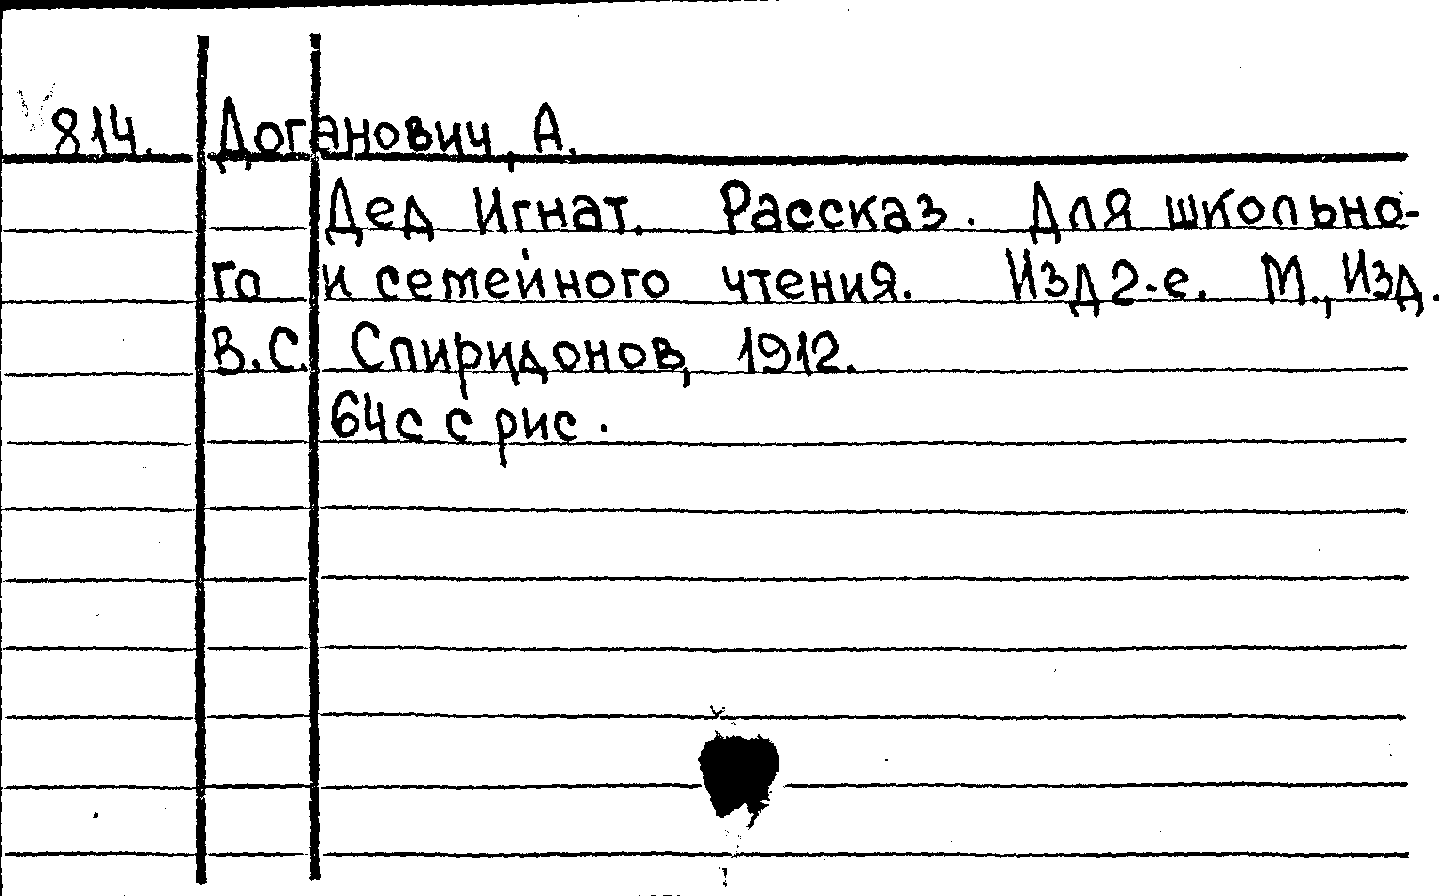 814. Доганович, А.
Дед Игнат. Рассказ. Для школьно-
го и семейного чтения. Изд 2-е. М., Изд.
В.С. Спиридонов, 1912.
64с с рис.